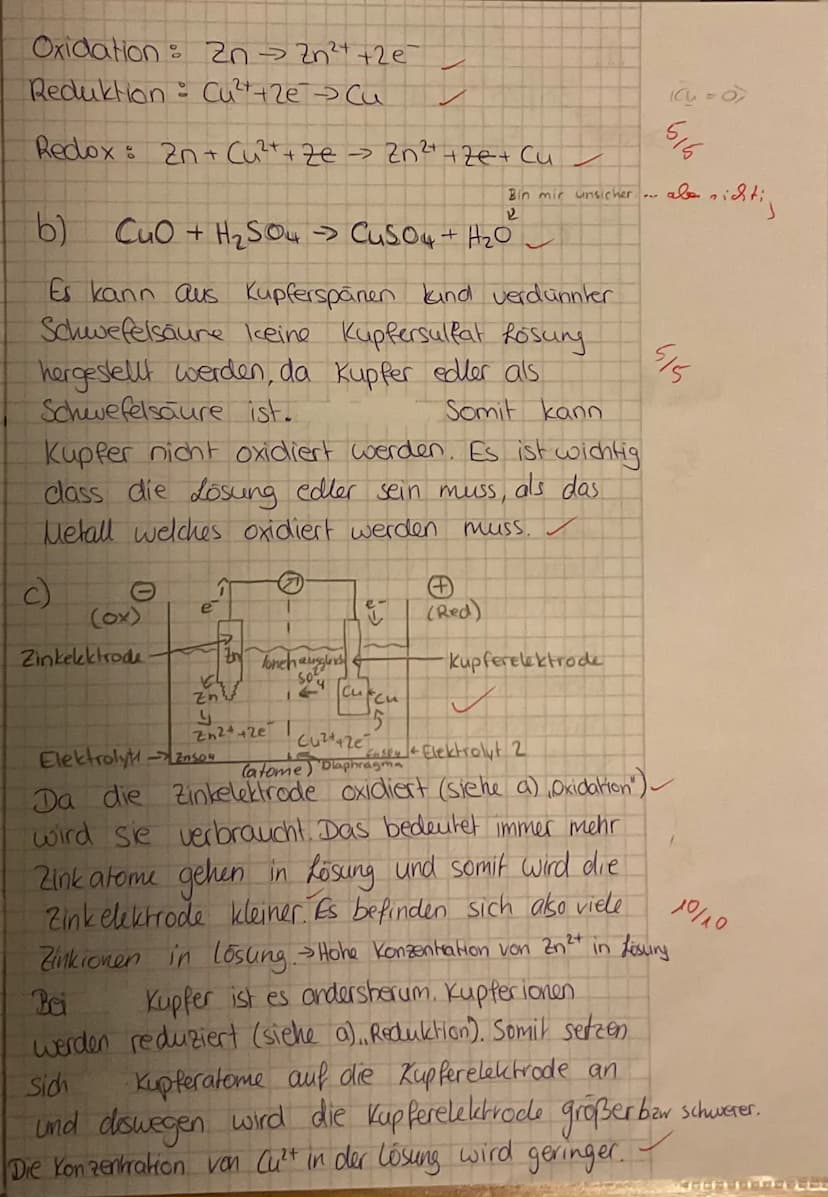 Oxidation: Zn → Zn²⁺ + 2e⁻
Reduktion: Cu²⁺ + 2e⁻ → Cu
(Cu = 0)
5/5
Redox: Zn + Cu²⁺ + 2e → Zn²⁺ + 2e + Cu
Bin mir unsicher ... aber richtig
b) CuO + H₂SO₄ → CuSO₄ + H₂O
Es kann aus Kupferspänen und verdünnter
Schwefelsäure keine Kupfersulfat Lösung
5/5
hergestellt werden, da Kupfer edler als
Schwefelsäure ist. Somit kann
Kupfer nicht oxidiert werden. Es ist wichtig
dass die Lösung edler sein muss, als das
Metall welches oxidiert werden muss.
c) ⊖ ⊕
(Ox) e⁻ e⁻ (Red)
Zinkelektrode Zn Ionenausgleich Kupferelektrode
SO₄
Zn Cu Cu
Zn²⁺ + 2e⁻ Cu²⁺ + 2e⁻
Elektrolyt1 → ZnSO4 CuSO4 ← Elektrolyt 2
(atome) Diaphragma
Da die Zinkelektrode oxidiert (siehe a) „Oxidation")
wird sie verbraucht. Das bedeutet immer mehr
Zinkatome gehen in Lösung und somit wird die
Zinkelektrode kleiner. Es befinden sich also viele
10/10
Zinkionen in lösung. → Hohe Konzentration von Zn²⁺ in Lösung
Bei Kupfer ist es andersherum. Kupferionen
werden reduziert (siehe a) „Reduktion). Somit setzen
sich Kupferatome auf die Kupferelektrode an
und deswegen wird die Kupferelektrode größer bzw schwerer.
Die Konzentration von Cu²⁺ in der Lösung wird geringer.